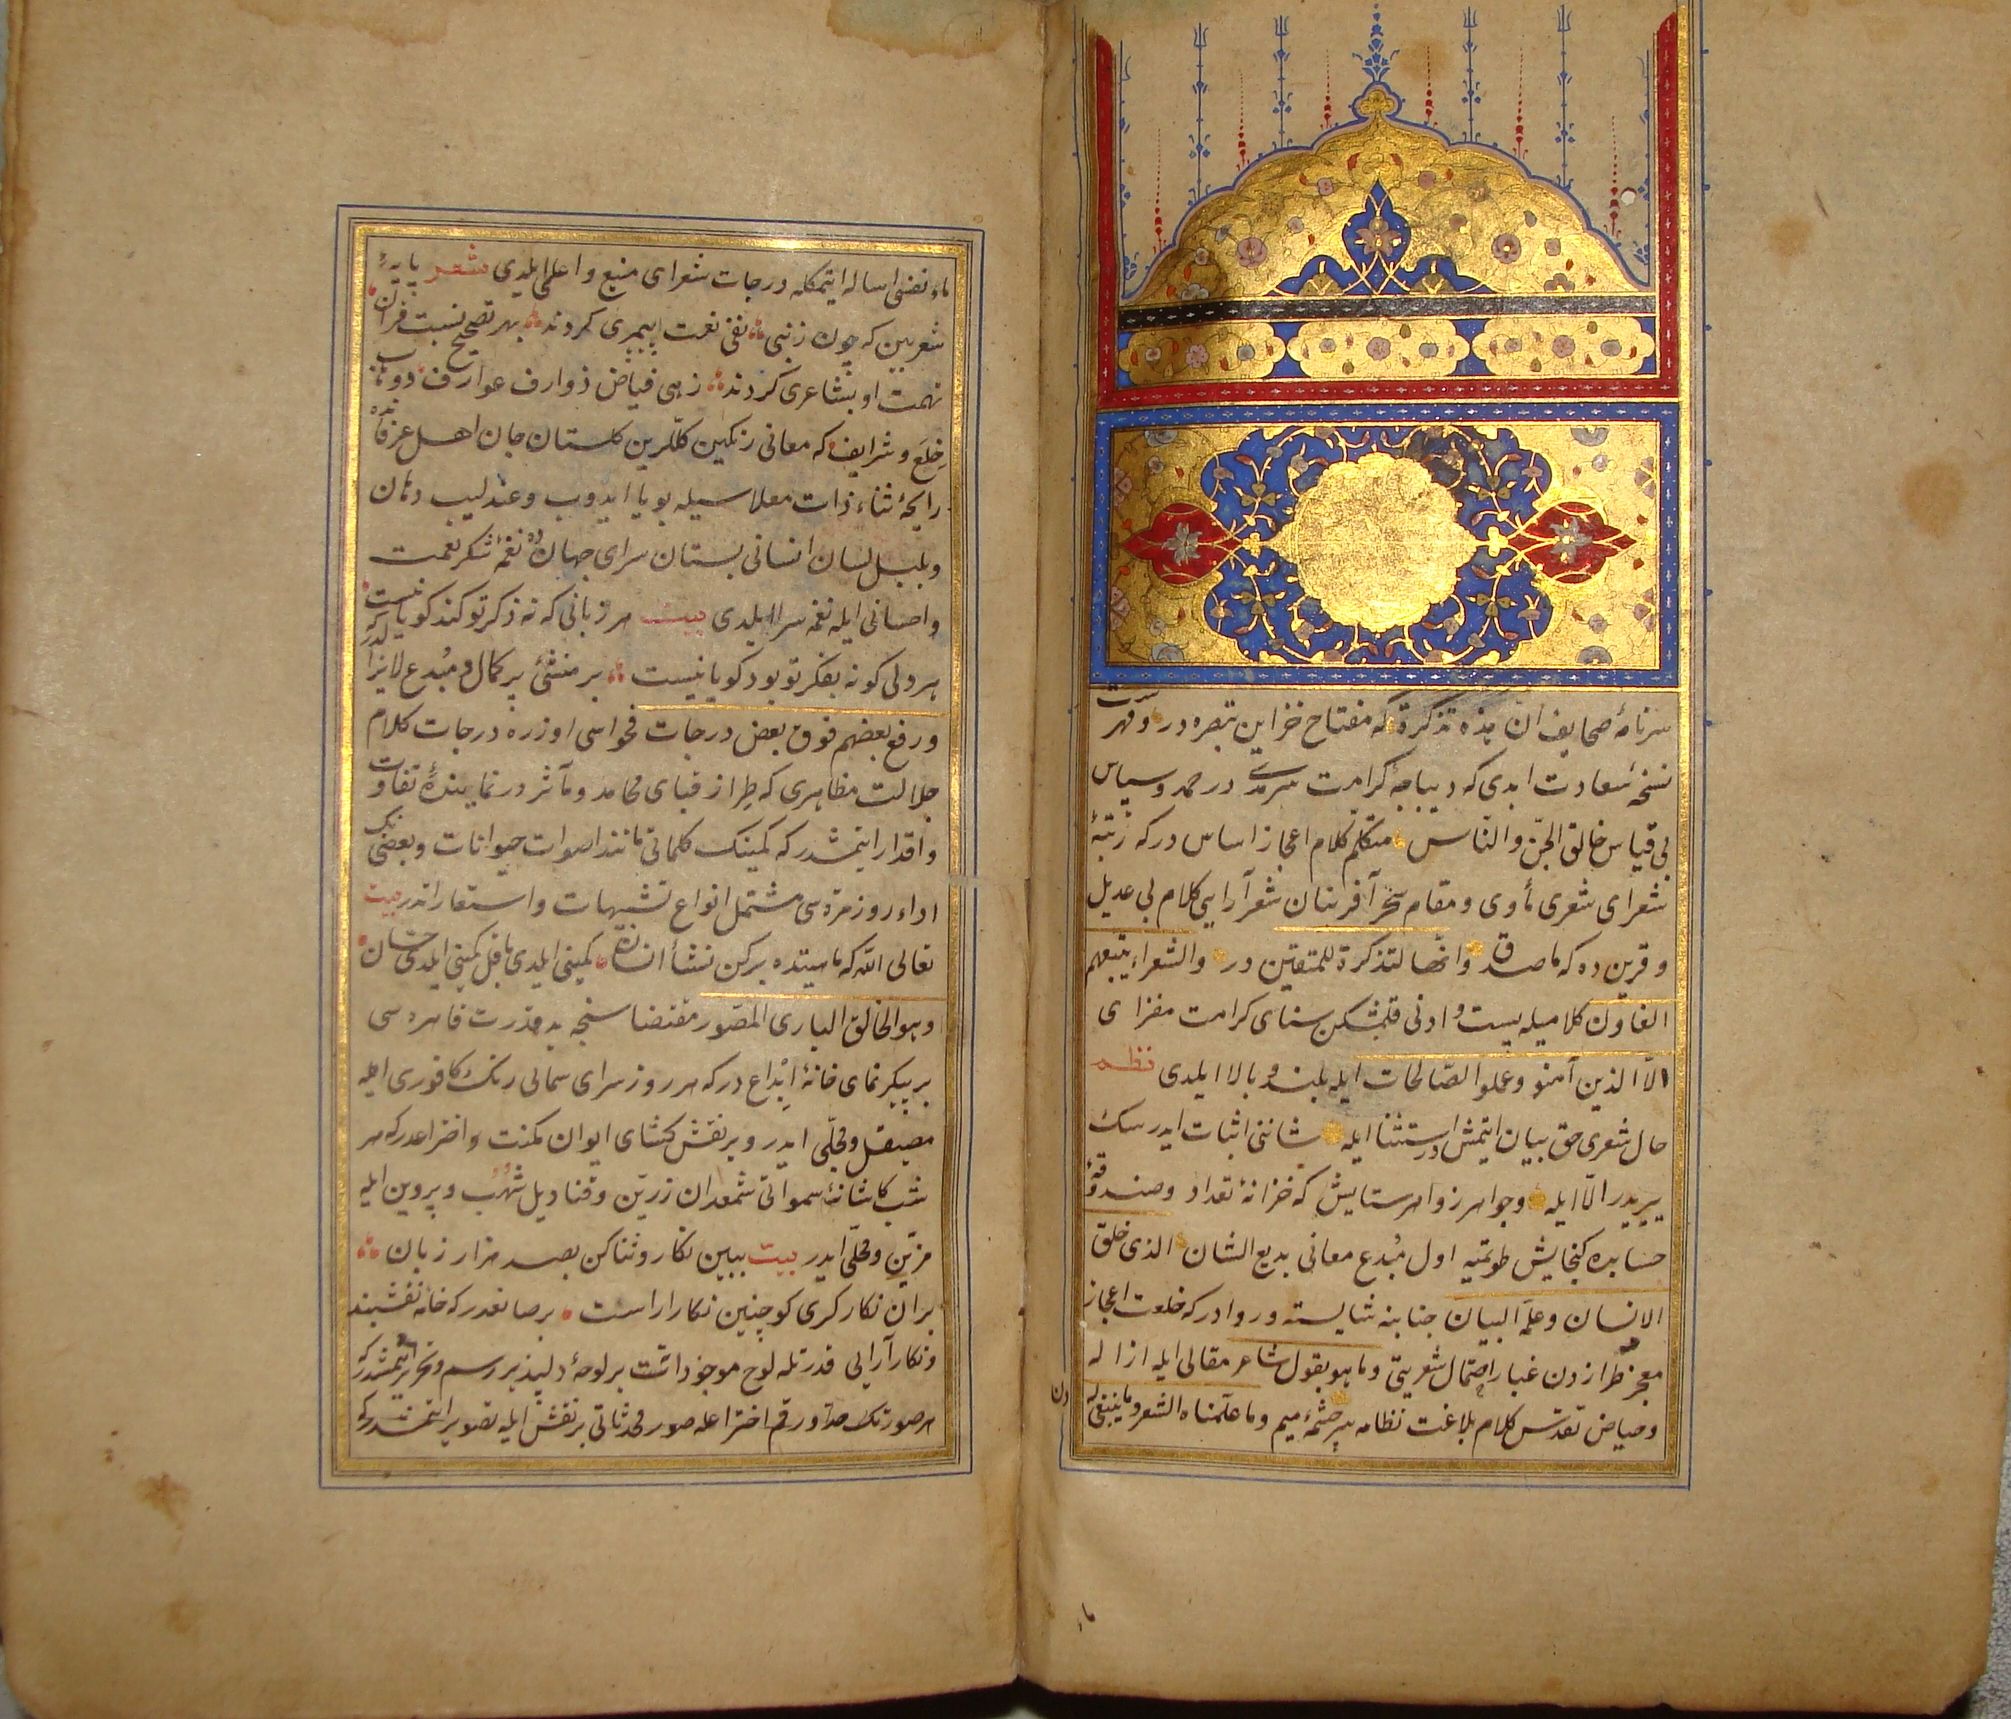 سرنامهٔ صحایف ان هذه تذکرة که مفتاح خزاین تبصره در و فهرست
نسخهٔ سعادت ابدی که دیباجهٔ کرامت سرمدی در حمد و سپاس
بی قیاس خالق الجن والناس متکلم کلام اعجاز اساس در که رتبهٔ
شعرای شعری مأوی و مقام سحر آفرینان شعر آرایی کلام بی عدیل
و قرین ده که ماصدق وانها لتذکرة للمتقین در والشعراء یتبعهم
الغاون کلامیله پست و ادنی قلمشکن سنای کرامت مفزای
الا الذین آمنو وعملوا الصالحات ایله بلند و بالا ایلدی نظم
حال شعری حق بیان ایتمش در استثنا ایله شاننی اثبات ایدرسک
یریدر الا ایله وجواهر زواهر ستایش که خزانهٔ تعداد و صندوقهٔ
حسابده کنجایش طوتمیه اول مبدع معانی بدیع الشان الذی خلق
الانسان وعلمه البیان جنابنه شایسته و روادر که خلعت اعجاز
معجز طرازدن غبار احتمال شعریتی وما هو بقول شاعر مقالی ایله ازاله
وحیاض تقدس کلام بلاغت نظامه سرچشمهٔ میم وما علمناه الشعر وما ینبغی له دن
ماء
ماء نفنی اساله ایتمکله درجات شعرای منیع و اعلی ایلدی شعر پایهٔ
شعر بین که چون ز نبی نفی نعمت پیمبری کردند بهر تصحیح نسبت قران
تهمت او بشاعری کردند زهی فیاض ذوارف عوارف
خلع و شرایف که معانی رنکین کللرین کلستان جان اهل عرفانده
رایحهٔ ثناء ذات معلاسیله بویا ایدوب و عندلیب دهان
و بلبل لسان انسانی بستان سرای جهانده نغمهٔ شکر نعمت
و احسانی ایله نغمه سرا ایلدی بیت هر زبانی که نه ذکر تو کند کویا نیست
هر دلی کو نه بفکر تو بود کویا نیست بر منشئ پر کمال و مبدع لایزالدر که
ورفع بعضهم فوق بعض درجات فحواسی اوزره درجات کلام
جلالت مظاهری که طراز قبای محامد و مآثر در نمایندهٔ تفاوت
و اقدار ایتمشدر که کمینک کلماتی مانند اصوات حیوانات و بعضینک
اداء روزمره سی مشتمل انواع تشبیهات و استعاراتدر بیت
تعالی الله که ماهیتده برکن نشأ انسان کمینی ایلدی باقل کمینی ایلدی حسان
وهو الخالق الباری المصور مقتضاسنجه ید قدرت قاهره سی
بر پیکر نمای خانهٔ ابداع در که هر روز سرای سمایی رنک کافوری ایله
مصیقل و مجلی ایدر و بر نقش کشای ایوان مکنت و اختراعدر که هر
شب کاشانهٔ سمواتی شمعدان زرین و قنادیل شهب و پروین ایله
مزین و محلی ایدر بیت ببین نکار و ثنا کن بصد هزار زبان
بران نکارکری کو چنین نکارار است بر صانعدر که خامهٔ نقشبند
و نکارآرایی قدرتله لوح موجوداتت بر لوحهٔ دلپذیر رسم و تحریر ایتمشدر که
هر صورتک ورقم اختراعله صور محدثاتی بر نقش ایله تصویر ایتمشدر که